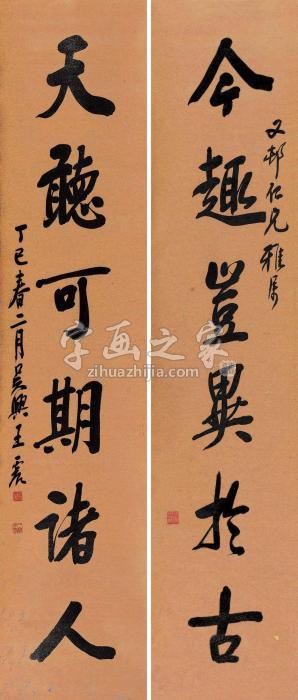 又邨仁兄雅属
今趣岂異於古
天聽可期諸人
丁巳春二月吴興王震
字画之家
zihuazhijia.com